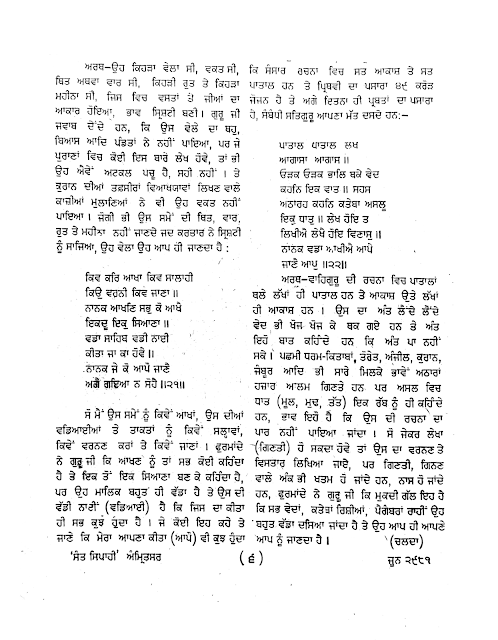 ਅਰਥ—ਉਹ ਕਿਹੜਾ ਵੇਲਾ ਸੀ, ਵਕਤ ਸੀ,
ਥਿਤ ਅਥਵਾ ਵਾਰ ਸੀ, ਕਿਹੜੀ ਰੁਤ ਤੇ ਕਿਹੜਾ
ਮਹੀਨਾ ਸੀ, ਜਿਸ ਵਿਚ ਵਸਤਾਂ ਤੇ ਜੀਆਂ ਦਾ
ਆਕਾਰ ਹੋਇਆ, ਭਾਵ ਸ੍ਰਿਸ਼ਟੀ ਬਣੀ। ਗੁਰੂ ਜੀ
ਜਵਾਬ ਦੇਂਦੇ ਹਨ, ਕਿ ਉਸ ਵੇਲੇ ਦਾ ਥਹੁ,
ਬਿਆਸ ਆਦਿ ਪੰਡਤਾਂ ਨੇ ਨਹੀਂ ਪਾਇਆ, ਪਰ ਜੇ
ਪੁਰਾਣਾਂ ਵਿਚ ਕੋਈ ਇਸ ਬਾਰੇ ਲੇਖ ਹੋਵੇ, ਤਾਂ ਭੀ
ਉਹ ਐਵੇਂ ਅਟਕਲ ਪਚੂ ਹੈ, ਸਹੀ ਨਹੀਂ । ਤੇ
ਕੁਰਾਨ ਦੀਆਂ ਤਫ਼ਸੀਰਾਂ ਵਿਆਖਯਾਵਾਂ ਲਿਖਣ ਵਾਲੇ
ਕਾਜ਼ੀਆਂ ਮੁਲਾਣਿਆਂ ਨੇ ਵੀ ਉਹ ਵਕਤ ਨਹੀਂ
ਪਾਇਆ । ਜੋਗੀ ਭੀ ਉਸ ਸਮੇਂ ਦੀ ਥਿਤ, ਵਾਰ,
ਰੁਤ ਤੇ ਮਹੀਨਾ ਨਹੀਂ ਜਾਣਦੇ ਜਦ ਕਰਤਾਰ ਨੇ ਸ੍ਰਿਸ਼ਟੀ
ਨੂੰ ਸਾਜਿਆ, ਉਹ ਵੇਲਾ ਉਹ ਆਪ ਹੀ ਜਾਣਦਾ ਹੈ :
ਕਿਵ ਕਰਿ ਆਖਾ ਕਿਵ ਸਾਲਾਹੀ
ਕਿਉ ਵਰਨੀ ਕਿਵ ਜਾਣਾ ॥
ਨਾਨਕ ਆਖਣਿ ਸਭੁ ਕੋ ਆਖੈ
ਇਕਦੂ ਇਕੁ ਸਿਆਣਾ ॥
ਵਡਾ ਸਾਹਿਬ ਵਡੀ ਨਾਈ
ਕੀਤਾ ਜਾ ਕਾ ਹੋਵੈ ॥
ਨਾਨਕ ਜੇ ਕੋ ਆਪੌ ਜਾਣੈ
ਅਗੈ ਗਇਆ ਨ ਸੋਹੈ ॥੨੧॥
ਸੋ ਮੈਂ ਉਸ ਸਮੇਂ ਨੂੰ ਕਿਵੇਂ ਆਖਾਂ, ਉਸ ਦੀਆਂ
ਵਡਿਆਈਆਂ ਤੇ ਤਾਕਤਾਂ ਨੂੰ ਕਿਵੇਂ ਸਲਾਵਾਂ,
ਕਿਵੇਂ ਵਰਨਣ ਕਰਾਂ ਤੇ ਕਿਵੇਂ ਜਾਣਾਂ । ਫੁਰਮਾਂਦੇ
ਨੇ ਗੁਰੂ ਜੀ ਕਿ ਆਖਣ ਨੂੰ ਤਾਂ ਸਭ ਕੋਈ ਕਹਿੰਦਾ
ਹੈ ਤੇ ਇਕ ਤੋਂ ਇਕ ਸਿਆਣਾ ਬਣ ਕੇ ਕਹਿੰਦਾ ਹੈ,
ਪਰ ਉਹ ਮਾਲਿਕ ਬਹੁਤ ਹੀ ਵੱਡਾ ਹੈ ਤੇ ਉਸ ਦੀ
ਵੱਡੀ ਨਾਈ (ਵਡਿਆਈ) ਹੈ ਕਿ ਜਿਸ ਦਾ ਕੀਤਾ
ਹੀ ਸਭ ਕੁਝ ਹੁੰਦਾ ਹੈ । ਜੇ ਕੋਈ ਇਹ ਕਹੇ ਤੇ
ਜਾਣੇ ਕਿ ਮੇਰਾ ਆਪਣਾ ਕੀਤਾ (ਆਪੌ) ਵੀ ਕੁਝ ਹੁੰਦਾ
ਕਿ ਸੰਸਾਰ ਰਚਨਾ ਵਿਚ ਸਤ ਆਕਾਸ਼ ਤੇ ਸਤ
ਪਾਤਾਲ ਹਨ ਤੇ ਪ੍ਰਿਥਵੀ ਦਾ ਪਸਾਰਾ ੪੯ ਕਰੋੜ
ਜੋਜਨ ਹੈ ਤੇ ਅਗੇ ਇਤਨਾ ਹੀ ਪ੍ਰਬਤਾਂ ਦਾ ਪਸਾਰਾ
ਹੈ, ਸੰਬੰਧੀ ਸਤਿਗੁਰੂ ਆਪਣਾ ਮੱਤ ਦਸਦੇ ਹਨ:—
ਪਾਤਾਲਾ ਪਾਤਾਲ ਲਖ
ਆਗਾਸਾ ਆਗਾਸ ॥
ਓੜਕ ਓੜਕ ਭਾਲਿ ਥਕੇ ਵੇਦ
ਕਹਨਿ ਇਕ ਵਾਤ ॥ ਸਹਸ
ਅਠਾਰਹ ਕਹਨਿ ਕਤੇਬਾ ਅਸਲੂ
ਇਕੁ ਧਾਤੁ ॥ ਲੇਖਾ ਹੋਇ ਤ
ਲਿਖੀਐ ਲੇਖੈ ਹੋਇ ਵਿਣਾਸੁ ॥
ਨਾਨਕ ਵਡਾ ਆਖੀਐ ਆਪੇ
ਜਾਣੈ ਆਪੁ ॥੨੨॥
ਅਰਥ—ਵਾਹਿਗੁਰੂ ਦੀ ਰਚਨਾ ਵਿਚ ਪਾਤਾਲਾਂ
ਥਲੇ ਲੱਖਾਂ ਹੀ ਪਾਤਾਲ ਹਨ ਤੇ ਆਕਾਸ਼ ਉਤੇ ਲੱਖਾਂ
ਹੀ ਆਕਾਸ਼ ਹਨ । ਉਸ ਦਾ ਅੰਤ ਲੈਂਦੇ ਲੈਂਦੇ
ਵੇਦ ਭੀ ਖੋਜ ਖੋਜ ਕੇ ਥਕ ਗਏ ਹਨ ਤੇ ਅੰਤ
ਇਹੋ ਬਾਤ ਕਹਿੰਦੇ ਹਨ ਕਿ ਅੰਤ ਪਾ ਨਹੀਂ
ਸਕੇ। ਪਛਮੀ ਧਰਮ-ਕਿਤਾਬਾਂ, ਤੌਰੇਤ, ਅੰਜੀਲ, ਕੁਰਾਨ,
ਜ਼ੰਬੂਰ ਆਦਿ ਭੀ ਸਾਰੇ ਮਿਲਕੇ ਭਾਵੇਂ ਅਠਾਰਾਂ
ਹਜ਼ਾਰ ਆਲਮ ਗਿਣਤੇ ਹਨ ਪਰ ਅਸਲ ਵਿਚ
ਧਾਤ (ਮੂਲ, ਮੁਢ, ਤੱਤ) ਇਕ ਰੱਬ ਨੂੰ ਹੀ ਕਹਿੰਦੇ
ਹਨ, ਭਾਵ ਇਹੋ ਹੈ ਕਿ ਉਸ ਦੀ ਰਚਨਾ ਦਾ
ਪਾਰ ਨਹੀਂ ਪਾਇਆ ਜਾਂਦਾ । ਸੋ ਜੇਕਰ ਲੇਖਾ
(ਗਿਣਤੀ) ਹੋ ਸਕਦਾ ਹੋਵੇ ਤਾਂ ਉਸ ਦਾ ਵਰਣਨ ਤੇ
ਵਿਸਤਾਰ ਲਿਖਿਆ ਜਾਏ, ਪਰ ਗਿਣਤੀ, ਗਿਨਣ
ਵਾਲੇ ਅੰਕ ਭੀ ਖਤਮ ਹੋ ਜਾਂਦੇ ਹਨ, ਨਾਸ ਹੋ ਜਾਂਦੇ
ਹਨ, ਫੁਰਮਾਂਦੇ ਨੇ ਗੁਰੂ ਜੀ ਕਿ ਮੁਕਦੀ ਗੱਲ ਇਹ ਹੈ
ਕਿ ਸਭ ਵੇਦਾਂ, ਕਤੇਬਾਂ ਰਿਸ਼ੀਆਂ, ਪੈਗੰਬਰਾਂ ਰਾਹੀਂ ਉਹ
ਬਹੁਤ ਵੱਡਾ ਦਸਿਆ ਜਾਂਦਾ ਹੈ ਤੇ ਉਹ ਆਪ ਹੀ ਆਪਣੇ
ਆਪ ਨੂੰ ਜਾਣਦਾ ਹੈ। (ਚਲਦਾ)
'ਸੰਤ ਸਿਪਾਹੀ' ਅੰਮ੍ਰਿਤਸਰ
( ੬ )
ਜੂਨ ੧੯੮੧